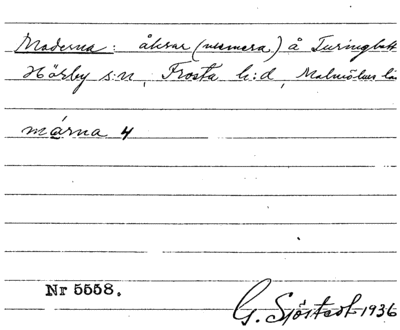 Moderna: åkrar (numera) å Turingtoft
Hörby s:n, Frosta h:d, Malmöhus lä
márna 4
Nr 5558.
G. Sjöstedt 1936